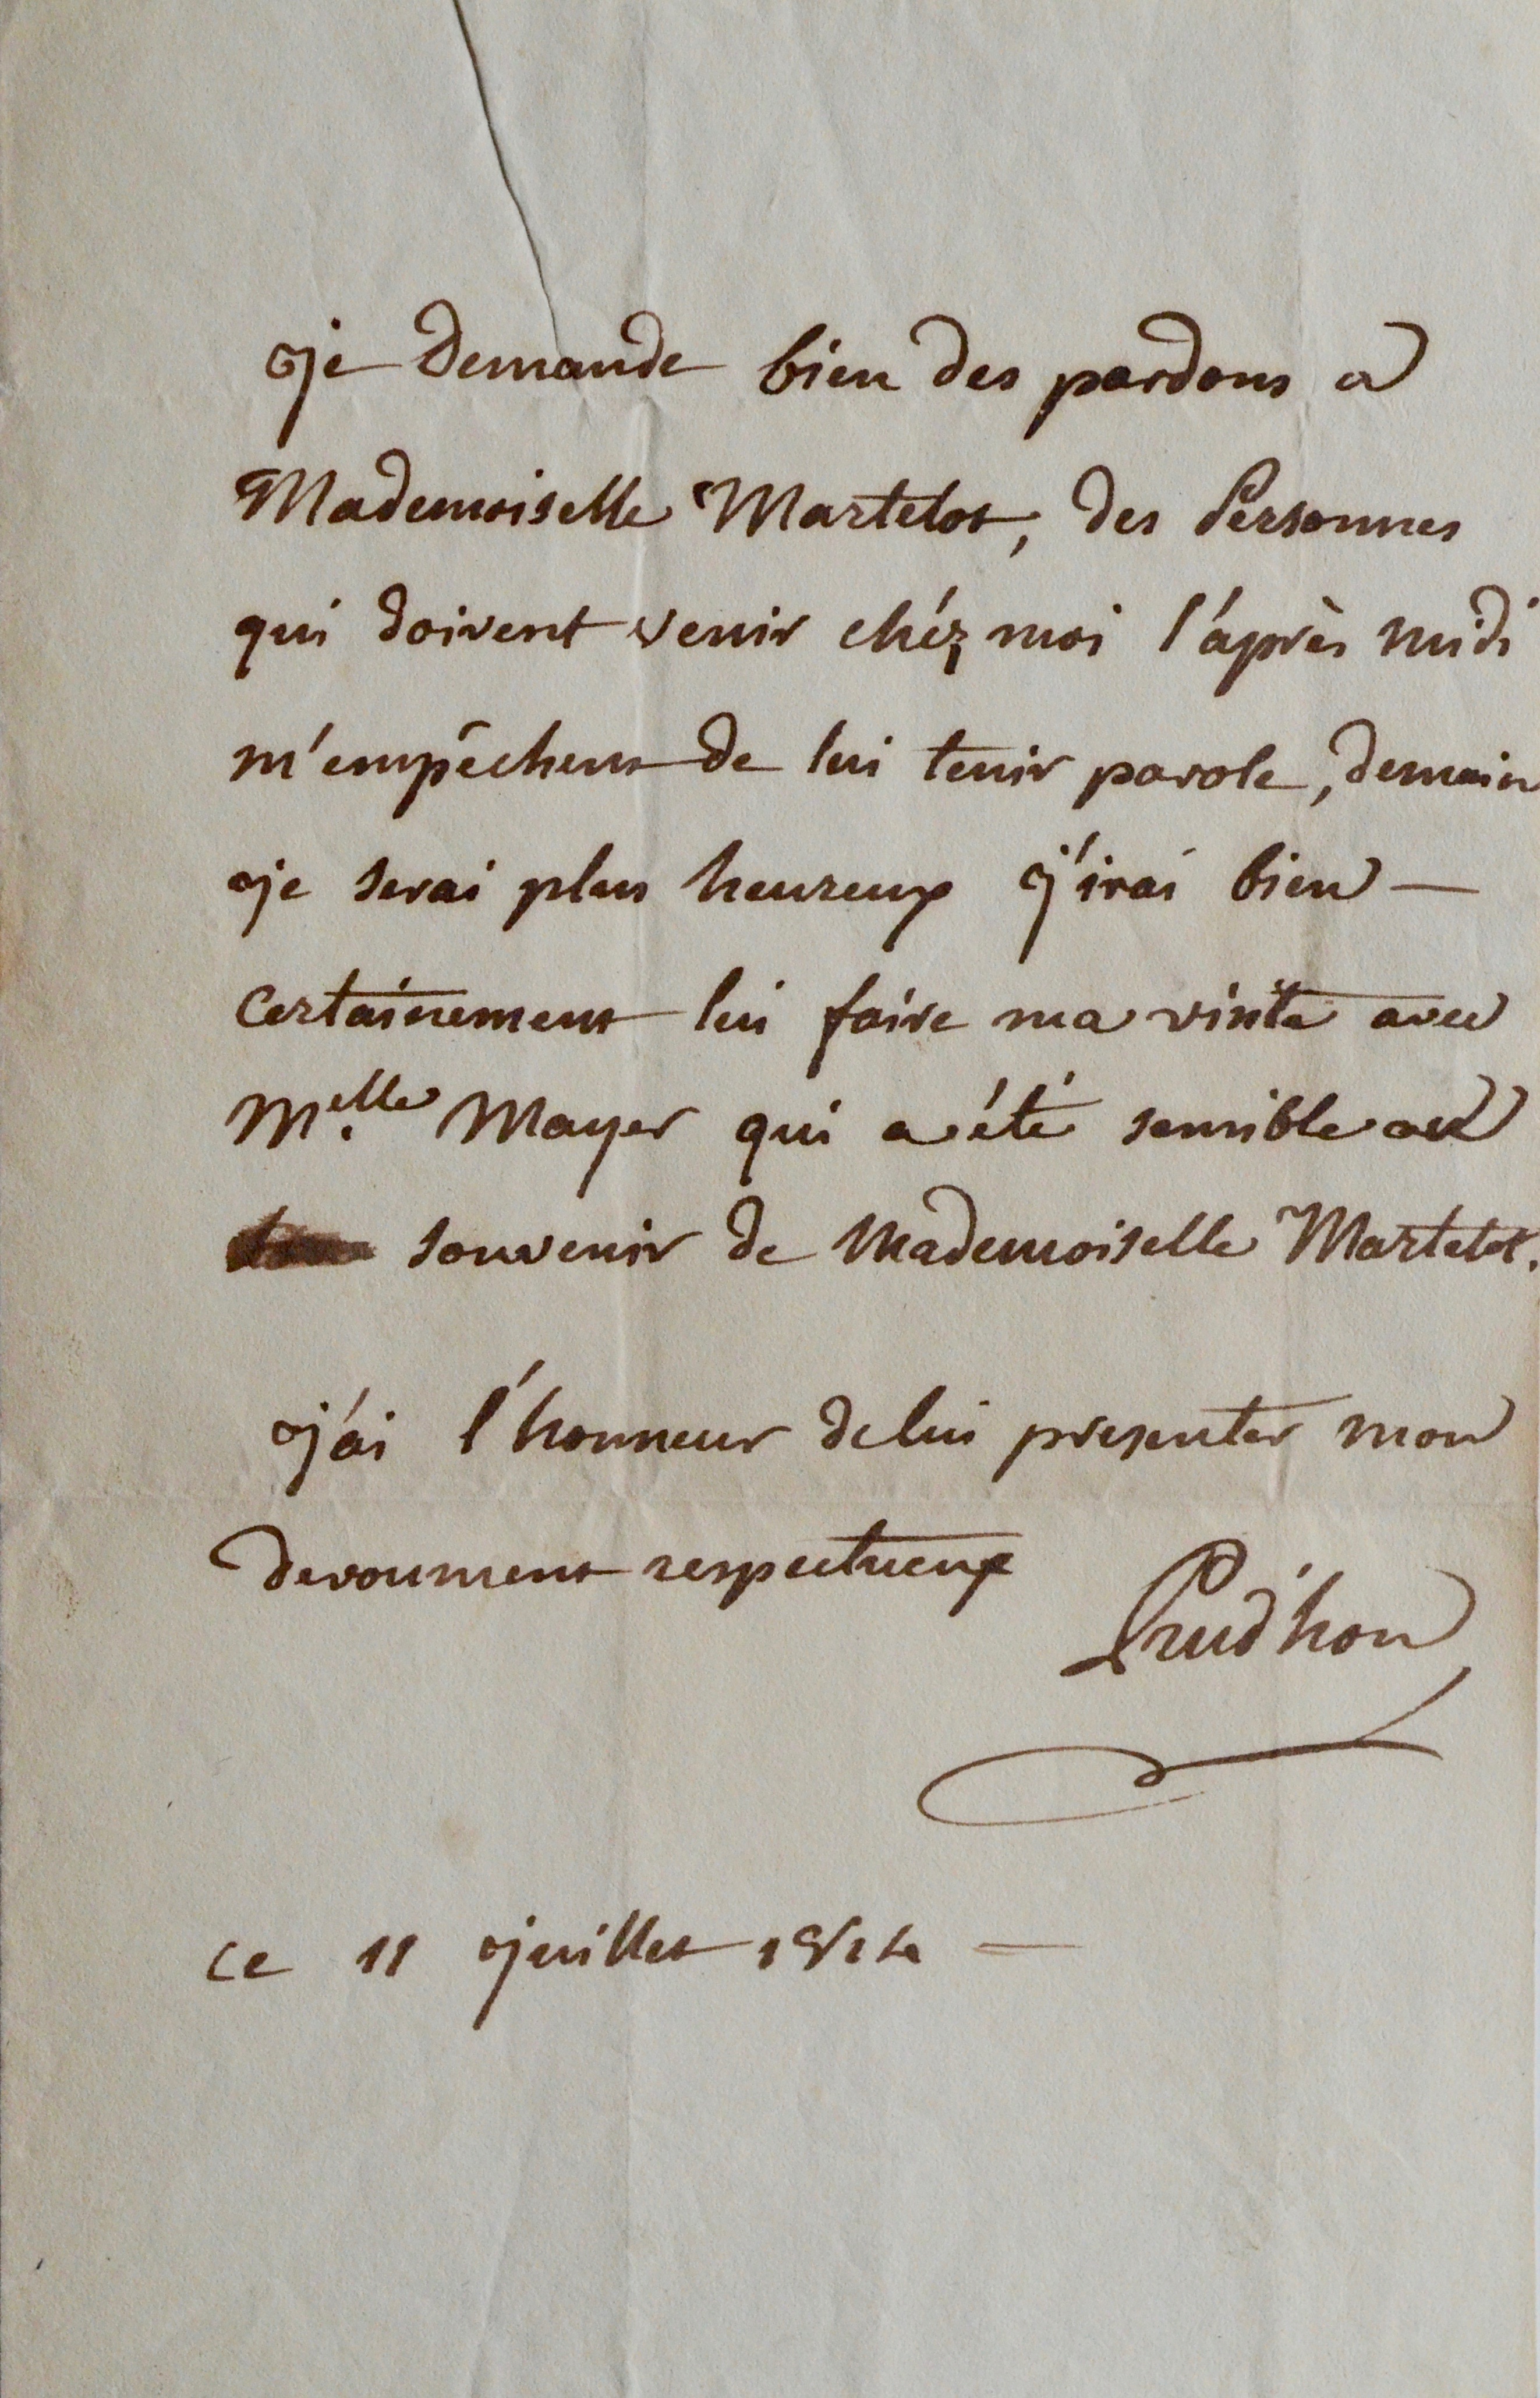 je demande bien des pardons a
Mademoiselle Martelot, des Personnes
qui doivent venir chéz moi l'après midi
m'empêchent de lui tenir parole, demain
je serai plus heureux j'irai bien —
certainement lui faire ma visite avec
Melle. Mayer qui a été sensible au
souvenir de Mademoiselle Martelot.
j'ai l'honneur de lui presenter mon
devoument respectueux
Prud'hon
ce 11 juillet —